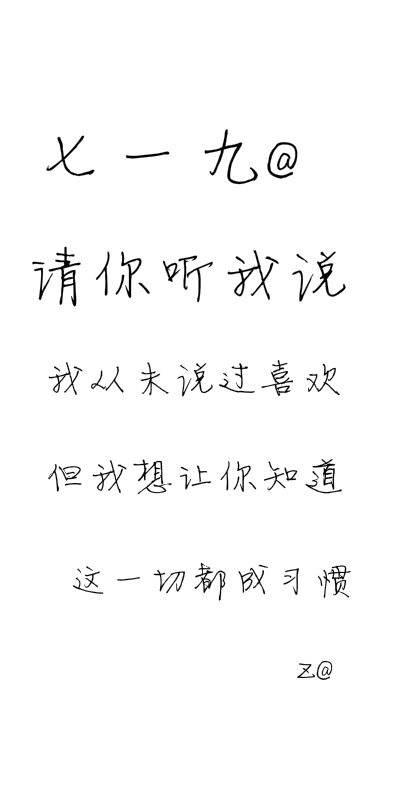 七一九@
请你听我说
我从未说过喜欢
但我想让你知道
这一切都成习惯
Z@